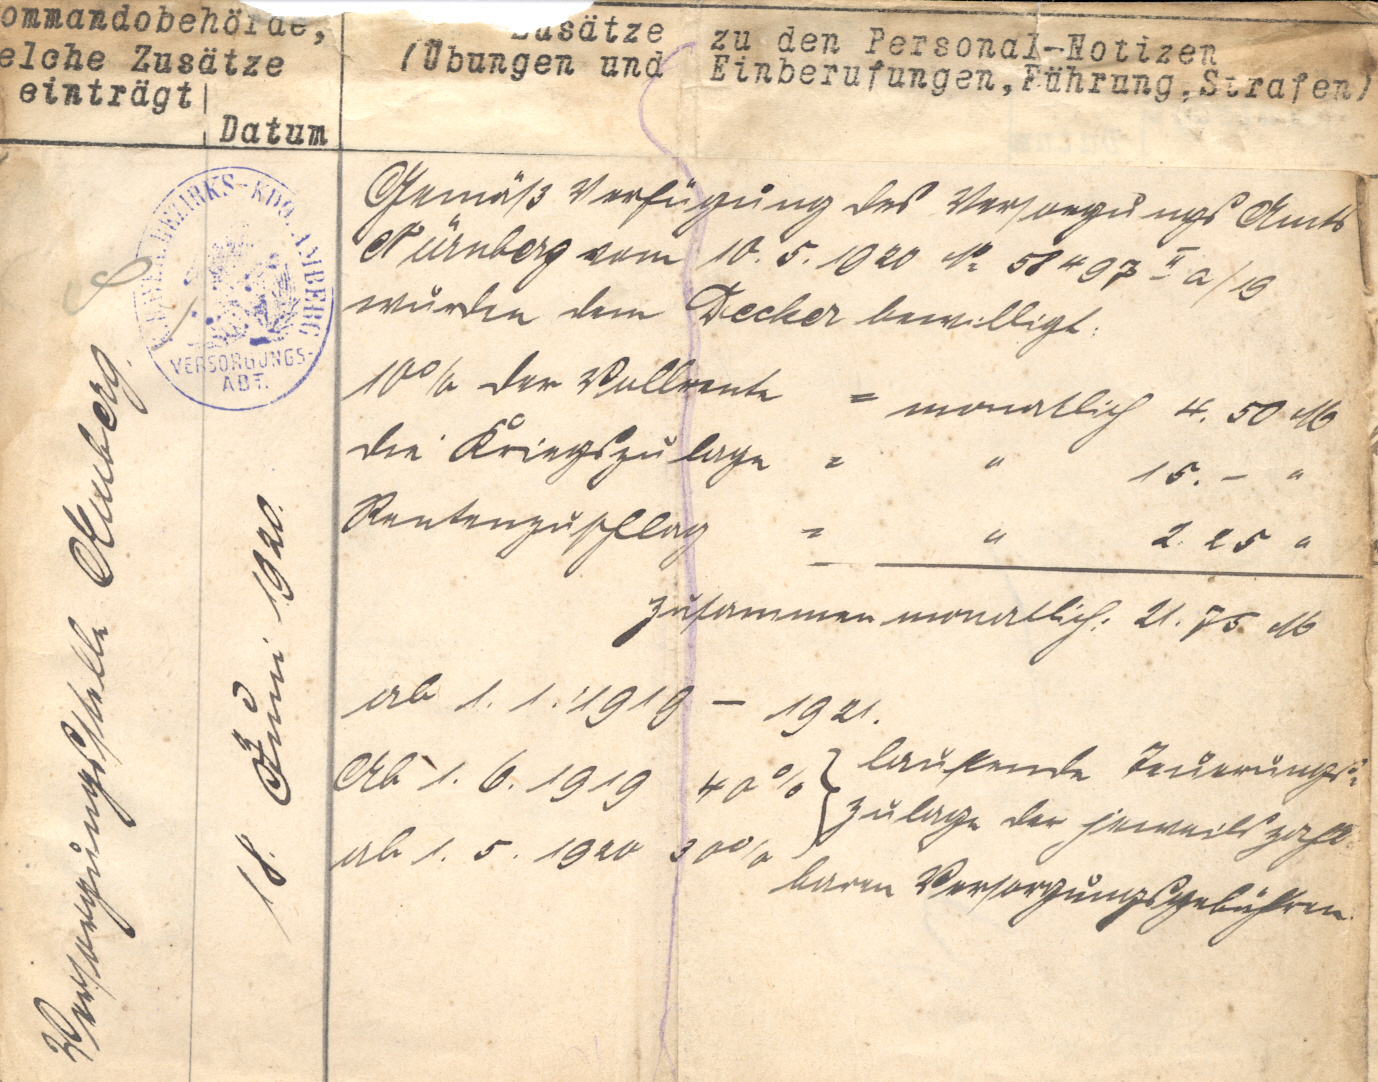 ommandobehörde,
elche Zusätze
einträgt
Datum
Zusätze zu den Personal-Notizen
(Übungen und Einberufungen, Führung, Strafen)
BEZIRKS-KDO. AMBERG
VERSORGUNGS-
ABT.
Versorgungsstelle Amberg.
18. Juni 1920.
Gemäß Verfügung des Versorgungs Amts
Nürnberg vom 10. 5. 1920 No 58497 II a/19
wurden dem Decker bewilligt:
10% der Vollrente = monatlich 4. 50 M
die Kriegszulage = " 15. – "
Rentenzuschlag = " 2. 25 "
zusammen monatlich: 21. 75 M
ab 1. 1. 1919 – 1921.
Ab 1. 6. 1919 40% } laufende Teuerungs=
zulage der jeweils zahl=
ab 1. 5. 1920 30%
baren Versorgungsgebühren.